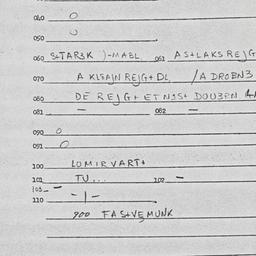 040 O
050
060 S+TARSK )-MABL 061 AS+LAKS REJG
070 A KLEAJN REJG+DL /A DROBN3
080 DE REJG+ ETNJS+ DOUBEN
081 — 082 —
090 O
091 O
100 LOMIRVART+
101 TU... 102 —
103 —
110 - | -
900 FAS+VEMUNK